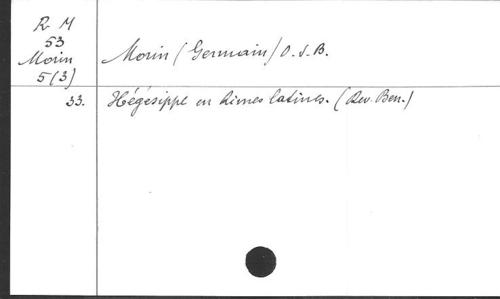 R M
53
Morin
5(3)
Morin (Germain) O.S.B.
33. Hégésippe en rimes latines. (Rev. Ben.)